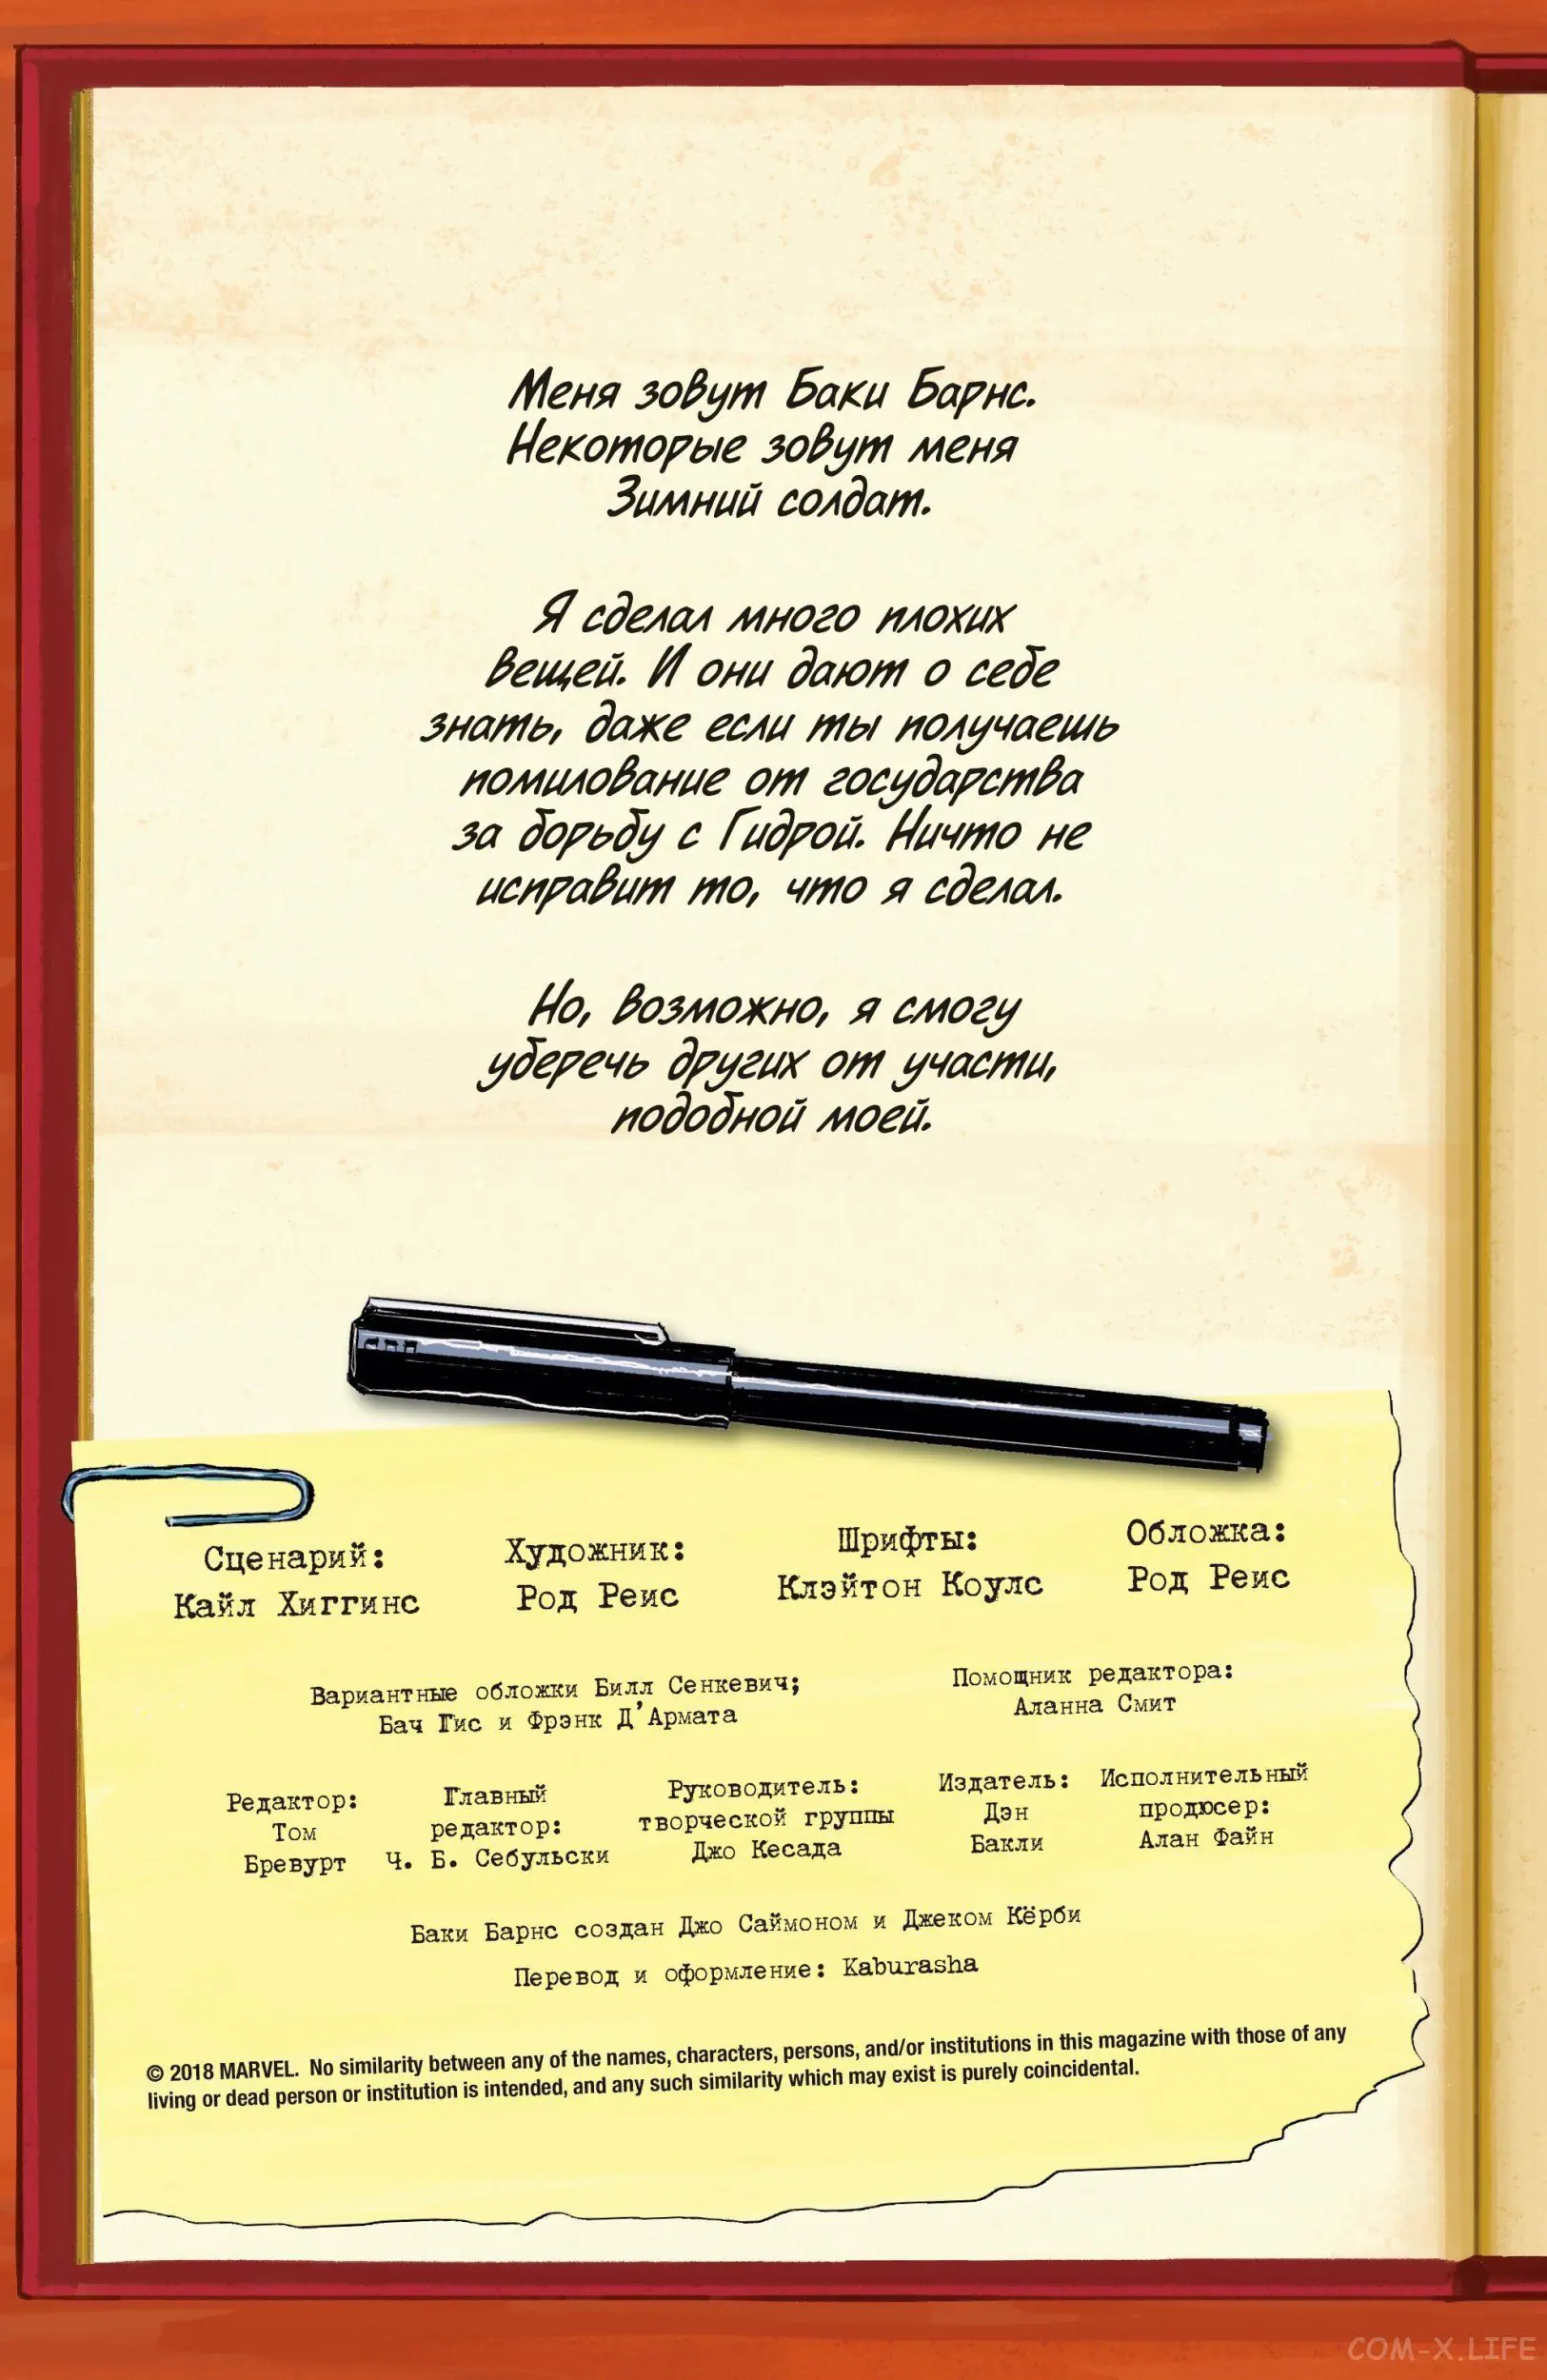 Меня зовут Баки Барнс.
Некоторые зовут меня
Зимний солдат.
Я сделал много плохих
вещей. И они дают о себе
знать, даже если ты получаешь
помилование от государства
за борьбу с Гидрой. Ничто не
исправит то, что я сделал.
Но, возможно, я смогу
уберечь других от участи,
подобной моей.
Сценарий:
Кайл Хиггинс
Художник:
Род Реис
Шрифты:
Клэйтон Коулс
Обложка:
Род Реис
Вариантные обложки Билл Сенкевич;
Бач Гис и Фрэнк Д'Армата
Помощник редактора:
Аланна Смит
Редактор:
Том
Бревурт
Главный
редактор:
Ч. Б. Себульски
Руководитель:
творческой группы
Джо Кесада
Издатель:
Дэн
Бакли
Исполнительный
продюсер:
Алан Файн
Баки Барнс создан Джо Саймоном и Джеком Кёрби
Перевод и оформление: Kaburasha
© 2018 MARVEL. No similarity between any of the names, characters, persons, and/or institutions in this magazine with those of any
living or dead person or institution is intended, and any such similarity which may exist is purely coincidental.
COM-X.LIFE